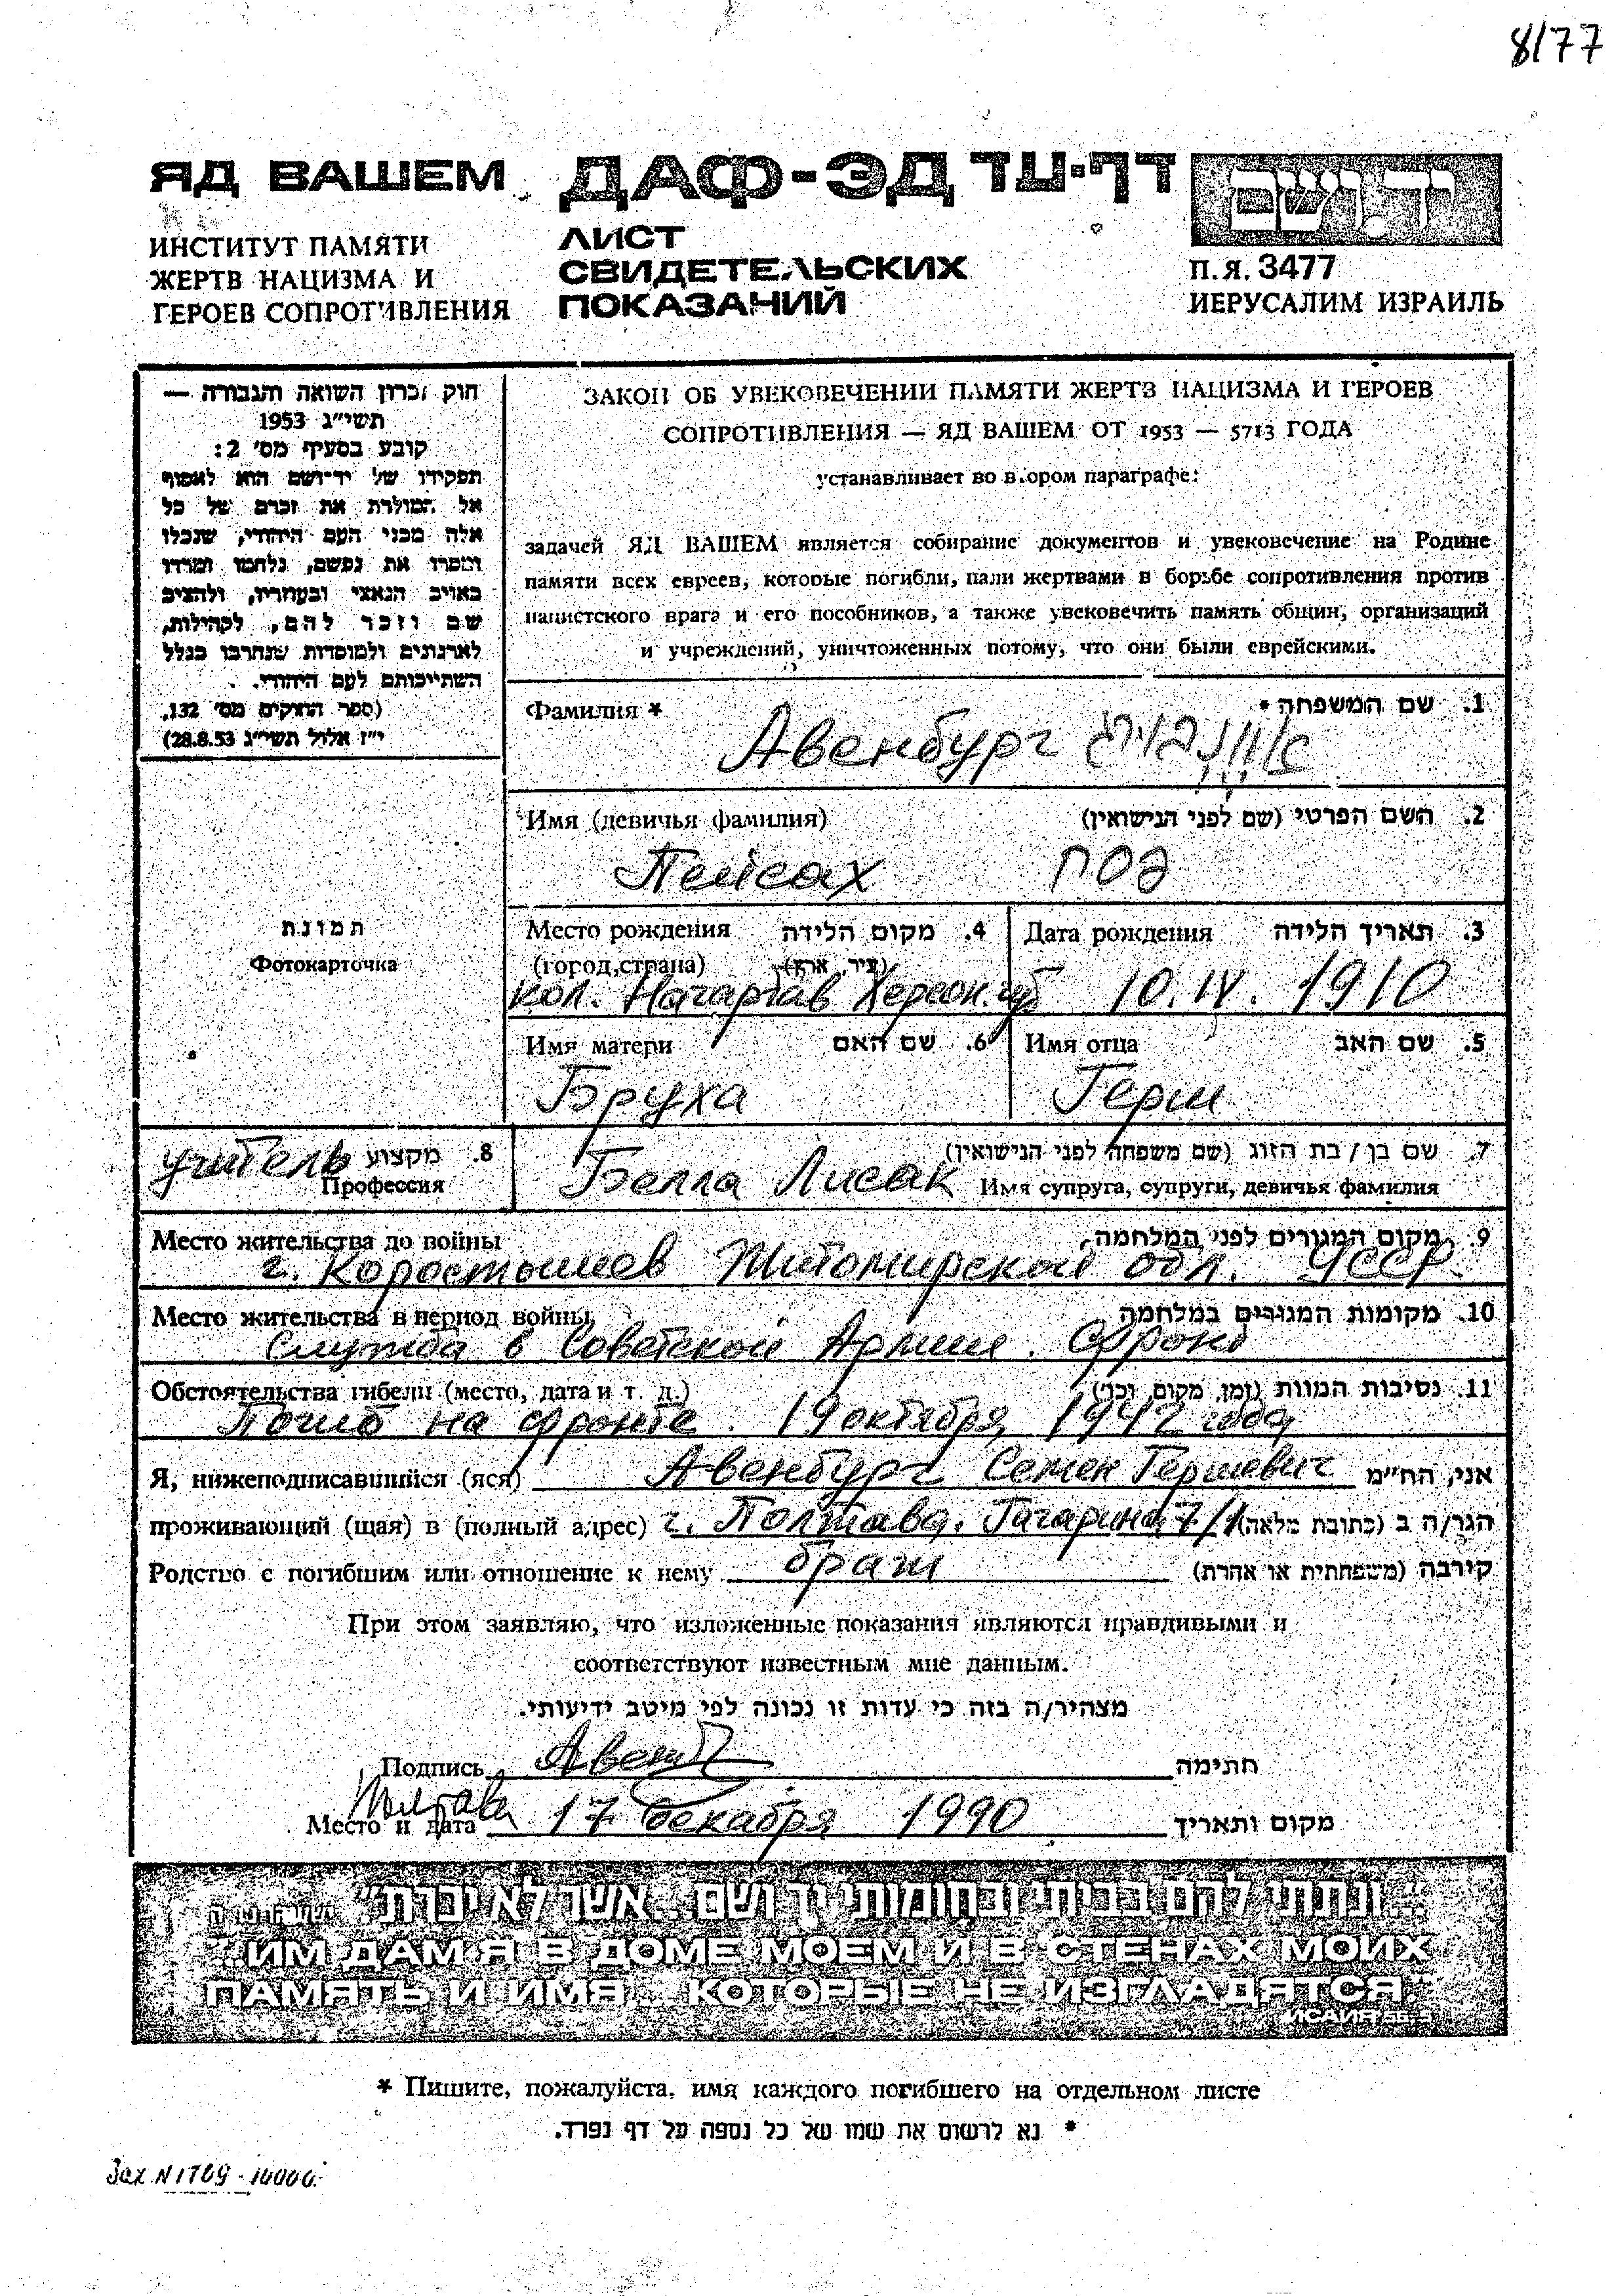 8/77
ЯД ВАШЕМ ДАФ-ЭД דף-עד יד ושם
ИНСТИТУТ ПАМЯТИ
ЖЕРТВ НАЦИЗМА И
ГЕРОЕВ СОПРОТИВЛЕНИЯ
ЛИСТ
СВИДЕТЕЛЬСКИХ
ПОКАЗАНИЙ
П.Я. 3477
ИЕРУСАЛИМ ИЗРАИЛЬ
חוק זכרון השואה והגבורה —
תשי"ג 1953
קובע בסעיף מס' 2:
תפקידו של יד-ושם הוא לאסוף
אל המולדת את זכרם של כל
אלה מבני העם היהודי, שנפלו
ומסרו את נפשם, נלחמו ומרדו
באויב הנאצי ובעוזריו, ולהציב
שם וזכר להם, לקהילות,
לארגונים ולמוסדות שנחרבו בגלל
השתייכותם לעם היהודי.
(ספר החוקים מס' 132,
י"ז אלול תשי"ג 28.8.53)
ЗАКОН ОБ УВЕКОВЕЧЕНИИ ПАМЯТИ ЖЕРТВ НАЦИЗМА И ГЕРОЕВ
СОПРОТИВЛЕНИЯ — ЯД ВАШЕМ ОТ 1953 — 5713 ГОДА
устанавливает во втором параграфе:
задачей ЯД ВАШЕМ является собирание документов и увековечение на Родине
памяти всех евреев, которые погибли, пали жертвами в борьбе сопротивления против
нацистского врага и его пособников, а также увековечить память общин, организаций
и учреждений, уничтоженных потому, что они были еврейскими.
Фамилия * 1. שם המשפחה *
Авенбург
Имя (девичья фамилия) 2. השם הפרטי (שם לפני הנישואין)
Пейсах פסח
תמונה
Фотокарточка
Место рождения 4. מקום הלידה
(город, страна) (עיר, ארץ)
кол. Нагартав Херсон. губ
Дата рождения 3. תאריך הלידה
10.IV. 1910
Имя матери 6. שם האם
Бруха
Имя отца 5. שם האב
Герш
учитель 8. מקצוע
Профессия
7. שם בן / בת הזוג (שם משפחה לפני הנישואין)
Белла Лисак Имя супруга, супруги, девичья фамилия
Место жительства до войны 9. מקום המגורים לפני המלחמה
г. Коростышев Житомирской обл. УССР.
Место жительства в период войны 10. מקומות המגורים במלחמה
Служба в Советской Армии. Фронт
Обстоятельства гибели (место, дата и т. д.) 11. נסיבות המוות (זמן, מקום, וכו')
Погиб на фронте. 19 октября 1942 года
Я, нижеподписавшийся (яся) Авенбург Семен Гершевич אני, הח"מ
проживающий (щая) в (полный адрес) г. Полтава, Гагарина 7/1 הגר/ה ב (כתובת מלאה)
Родство с погибшим или отношение к нему брат קירבה (משפחתית או אחרת)
При этом заявляю, что изложенные показания являются правдивыми и
соответствуют известным мне данным.
מצהיר/ה בזה כי עדות זו נכונה לפי מיטב ידיעותי.
Подпись חתימה
Полтава
Место и дата 17 декабря 1990 מקום ותאריך
"...ונתתי להם בביתי ובחומותי יד ושם... אשר לא יכרת"
"ИМ ДАМ Я В ДОМЕ МОЕМ И В СТЕНАХ МОИХ
ПАМЯТЬ И ИМЯ... КОТОРЫЕ НЕ ИЗГЛАДЯТСЯ."
* Пишите, пожалуйста, имя каждого погибшего на отдельном листе
* נא לרשום את שמו של כל נספה על דף נפרד.
Зак N 1709 - 10000